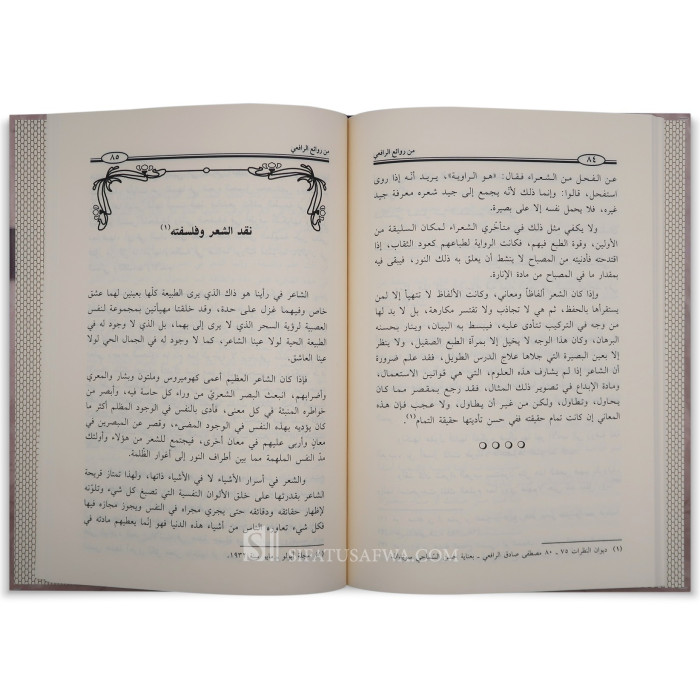 من روائع الرافعي
٨٤
عن الفحل من الشعراء فقال: «هو الراوية»، يريد أنّه إذا روى
استفحل، قالوا: وإنما ذلك لأنه يجمع إلى جيد شعره معرفة جيد
غيره، فلا يحمل نفسه إلا على بصيرة.
ولا يكفي مثل ذلك في متأخري الشعراء لمكان السليقة من
الأولين، وقوة الطبع فيهم، فكانت الرواية لطباعهم كعود الثقاب، إذا
اقتدحته فأدنيته من المصباح لا ينشط أن يعلق به ذلك النور، فيبقى فيه
بمقدار ما في المصباح من مادة الإنارة.
وإذا كان الشعر ألفاظاً ومعاني، وكانت الألفاظ لا تتهيأ إلا لمن
يستقرأها بالحفظ، ثم هي لا تجاذب ولا تقتسر مكارهة، بل لا بد لها
من وجه في التركيب تتأدى عليه، فيبسط به البيان، وينار بحسنه
البرهان، وكان هذا الوجه لا يخيل إلا بمرآة الطبع الصقيل، ولا ينظر
إلا بعين البصيرة التي جلاها علاج الدرس الطويل، فقد علم ضرورة
أن الشاعر إذا لم يشارف هذه العلوم، التي هي قوانين الاستعمال،
ومادة الإبداع في تصوير ذلك المثال، فقد رجع بمقصر مما كان
يحاول، وتطاول، ولكن من غير أن يطاول، ولا عجب فإن هذه
المعاني إن كانت تمام حقيقته ففي حسن تأديتها حقيقة التمام(١).
(١) ديوان النظرات ٧٥ ـ ٨٠ مصطفى صادق الرافعي ـ بعناية
من روائع الرافعي
٨٥
نقد الشعر وفلسفته(١)
الشاعر في رأينا هو ذاك الذي يرى الطبيعة كلّها بعينين لهما عشق
خاص وفيهما غزل على حدة، وقد خلقتا مهيأتين بمجموعة لنفس
العصبية لرؤية السحر الذي لا يرى إلا بهما، بل الذي لا وجود له في
الطبيعة الحية لولا عينا الشاعر، كما لا وجود له في الجمال الحي لولا
عينا العاشق.
فإذا كان الشاعر العظيم أعمى كهوميروس وملتون وبشار والمعري
وأضرابهم، انبعث البصر الشعريّ من وراء كل حاسة فيه، وأبصر من
خواطره المنبثة في كل معنى، فأدى بالنفس في الوجود المظلم أكثر ما
كان يؤديه بهذه النفس في الوجود المضيء، وقصر عن المبصرين في
معان وأربى عليهم في معان أخرى، فيجتمع للشعر من هؤلاء وأولئك
مدّ النفس الملهمة مما بين أطراف النور إلى أغوار الظّلمة.
والشعر في أسرار الأشياء لا في الأشياء ذاتها، ولهذا تمتاز قريحة
الشاعر بقدرتها على خلق الألوان النفسية التي تصبغ كل شيء وتلوّنه
لإظهار حقائقه ودقائقه حتى يجري مجراه في النفس ويجوز مجازه فيها
فكل شيء تعاوره الناس من أشياء هذه الدنيا فهو إنما يعطيهم مادته في
SIFATUSAFWA.COM